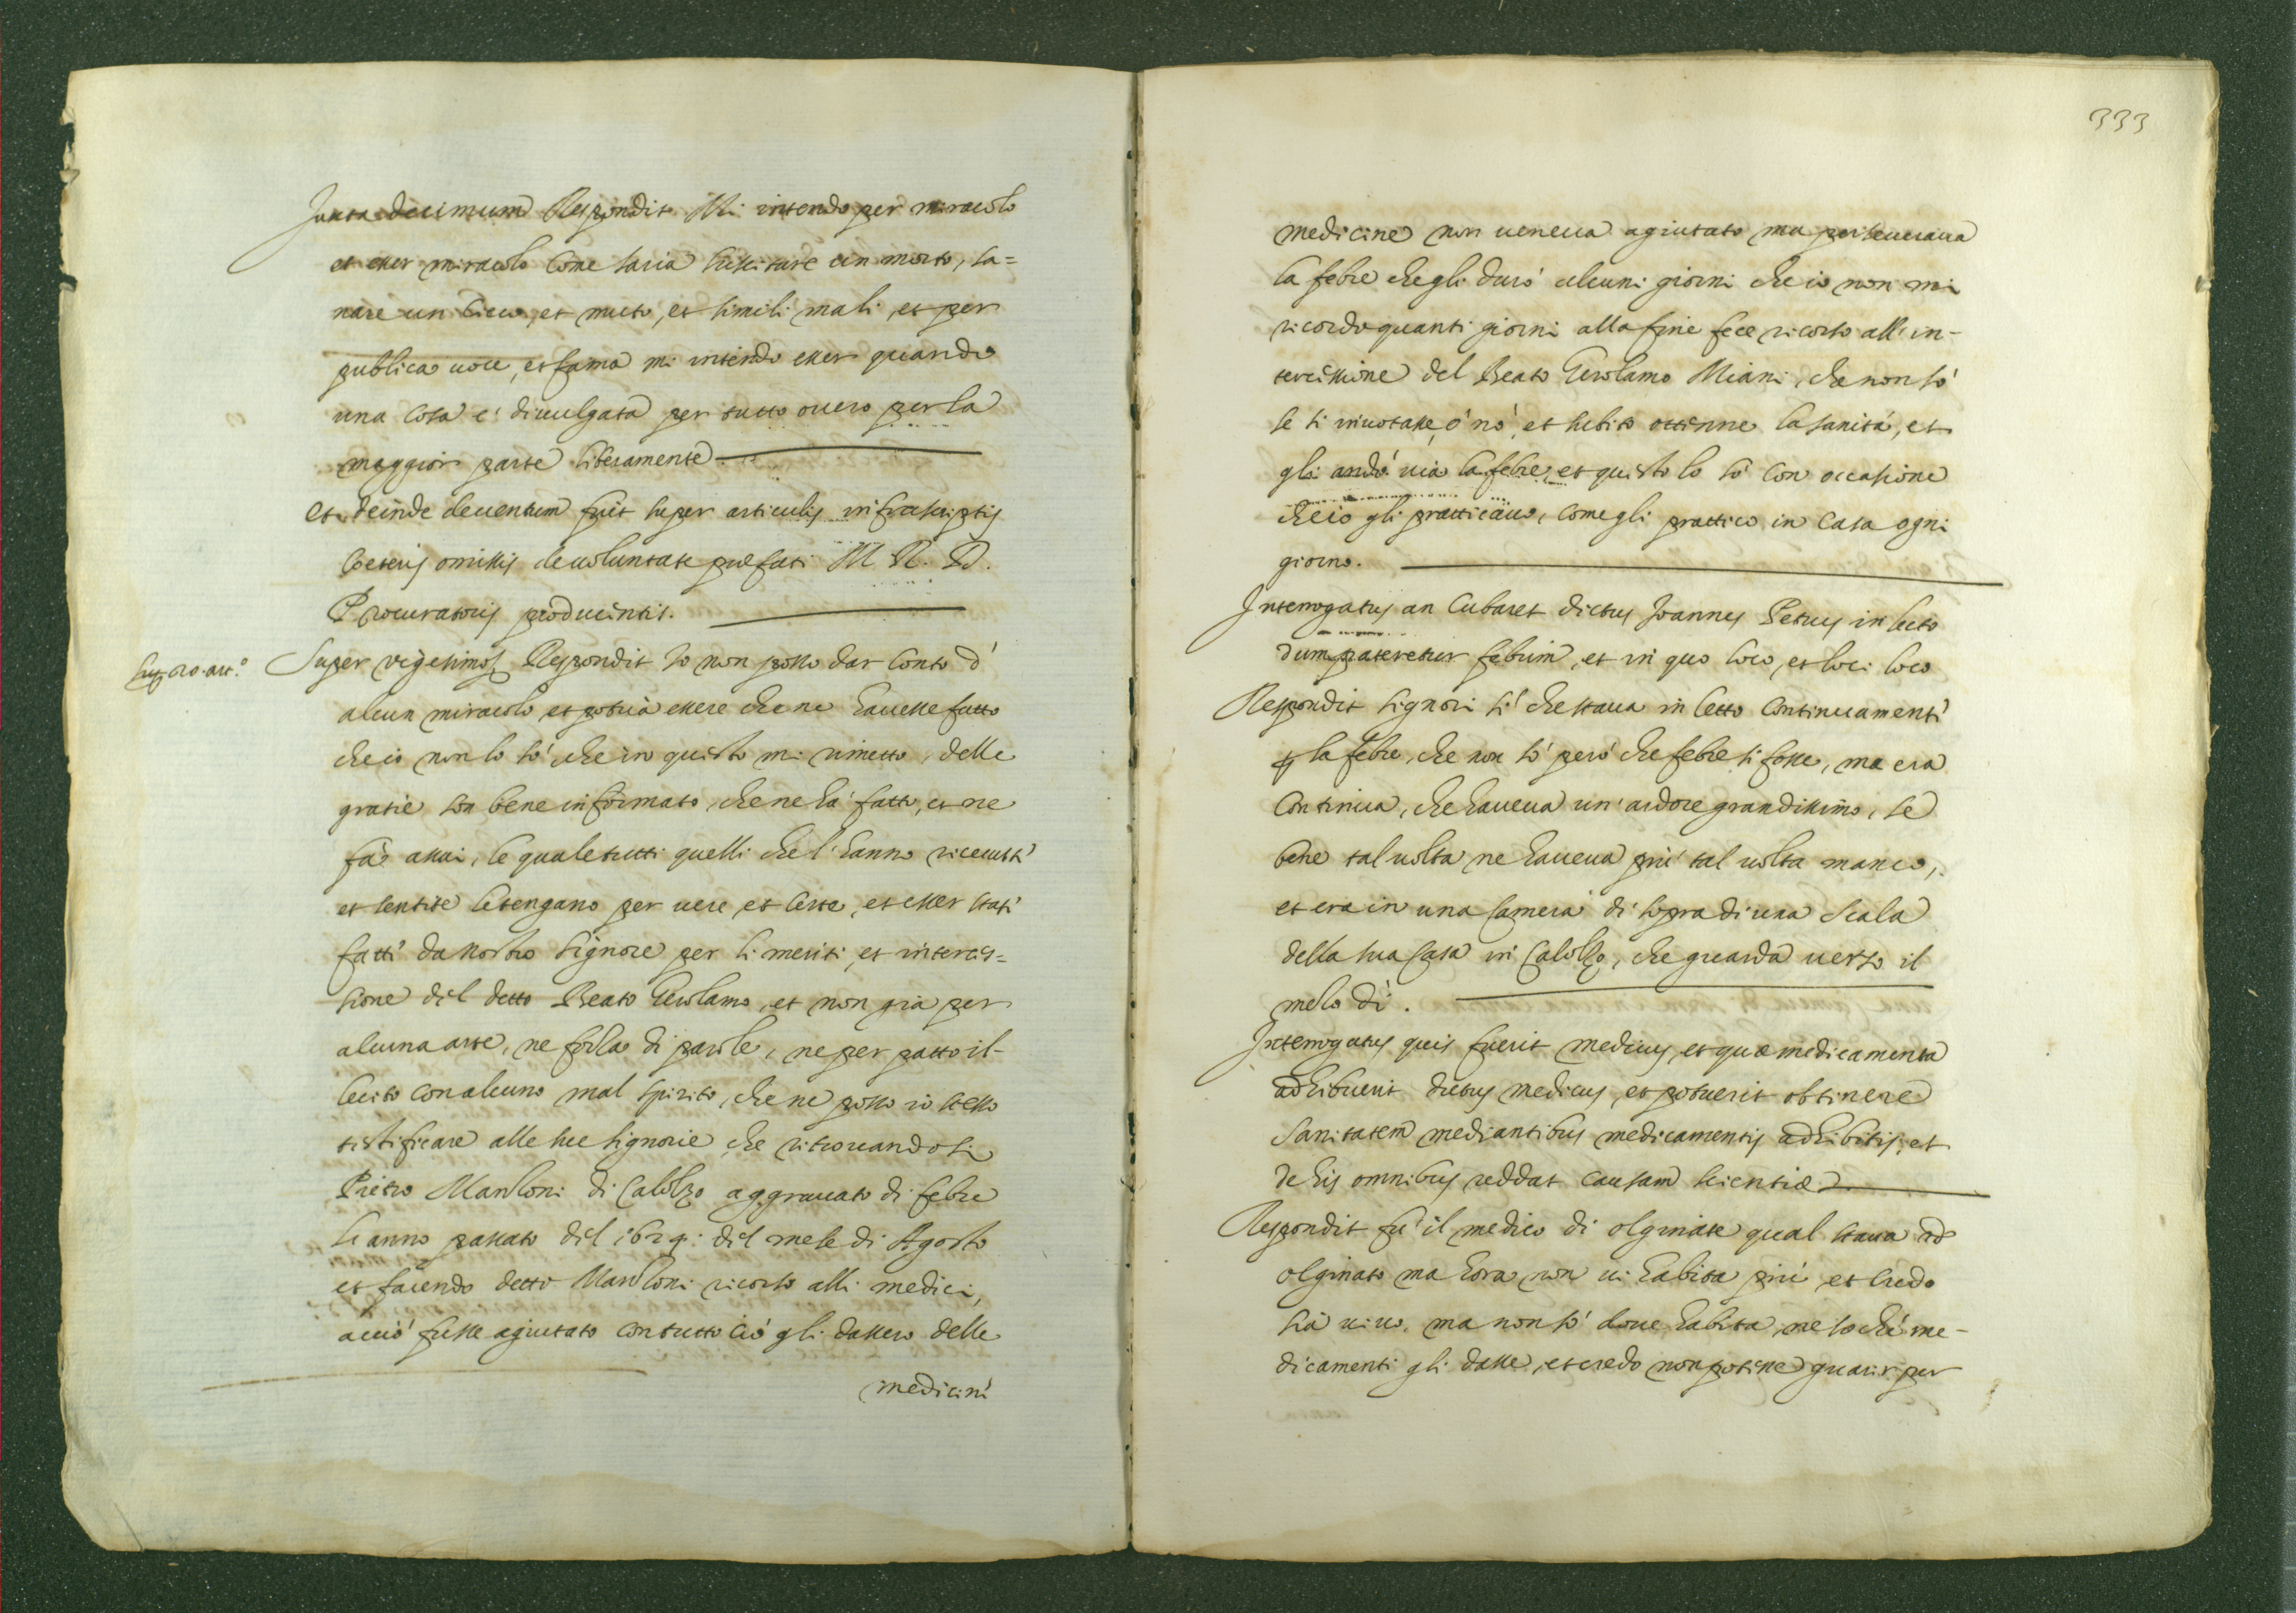 Juxta decimum Respondit Mi intendo per miracolo
et esser miracolo come saria suscitare un morto, sa=
nare un cieco, et muto, et simili mali, et per
publica uoce, et fama mi intendo esser quando
una cosa e' diuulgata per tutto ouero per la
maggior parte liberamente.
et deinde deuentum fuit super articulis infrascriptis
coeteris omissis de uoluntate prefati M. R. D.
Procuratoris producentis.
Sup. 20. art.º
Super vigesimo Respondit Io non posso dar conto d'
alcun miracolo, et potria essere che ne hauesse fatto
che io non lo so' che in questo mi rimetto, delle
gratie son bene informato, che ne ha' fatto, et ne
fa' assai, le quale tutti quelli che l'hanno riceuuti
et sentite le tengano per uere, et certe, et esser stati
fatti da nostro Signore per li meriti, et interces=
sione del detto Beato Gerolamo, et non gia per
alcuna arte, ne forza di parole, ne per patto il-
lecito con alcuno mal spirito, che ne posso io stesso
testificare alle sue Signorie che ritrouandosi
Pietro Manzoni di Calolzo aggrauato di febre
l'anno passato del 1624: del mese di Agosto
et facendo detto Manzoni ricorso alli medici,
accio' fusse agiutato con tutto cio' gli dassero delle
medicine
333
medicine non ueneua agiutato ma perseueraua
la febre che gli duro' alcuni giorni che io non mi
ricordo quanti giorni alla fine fece ricorso all'in-
tercessione del Beato Gerolamo Miani, che non so'
se si inuotasse, o' no', et subito ottenne la sanita', et
gli ando' uia la febre, et questo lo so' con occasione
che io gli pratticauo, come gli prattico in casa ogni
giorno.
Interrogatus an Cubaret dictus Joannes Petrus in lecto
dum pateretur febrim, et in quo loco, et loci loco
Respondit Signori si' che staua in letto continuamente
per la febre, che non so' pero' che febre si fosse, ma era
continua, che haueua un' ardore grandissimo, se
bene tal uolta ne haueua piu' tal uolta manco,
et era in una camera di sopra di una scala
della sua casa in Calolzo, che guarda uerso il
mezo di'.
Interrogatus quis fuerit medicus, et quæ medicamenta
adhibuerit dictus medicus, et potuerit obtinere
sanitatem mediantibus medicamentis adhibitis, et
de his omnibus reddat causam scientiæ.
Respondit fu' il medico di Olginate qual staua ad
Olginato ma hora non ui habita piu' et credo
sia uiuo, ma non so' doue habita, ne so che me-
dicamenti gli dasse, et credo non potesse guarir per